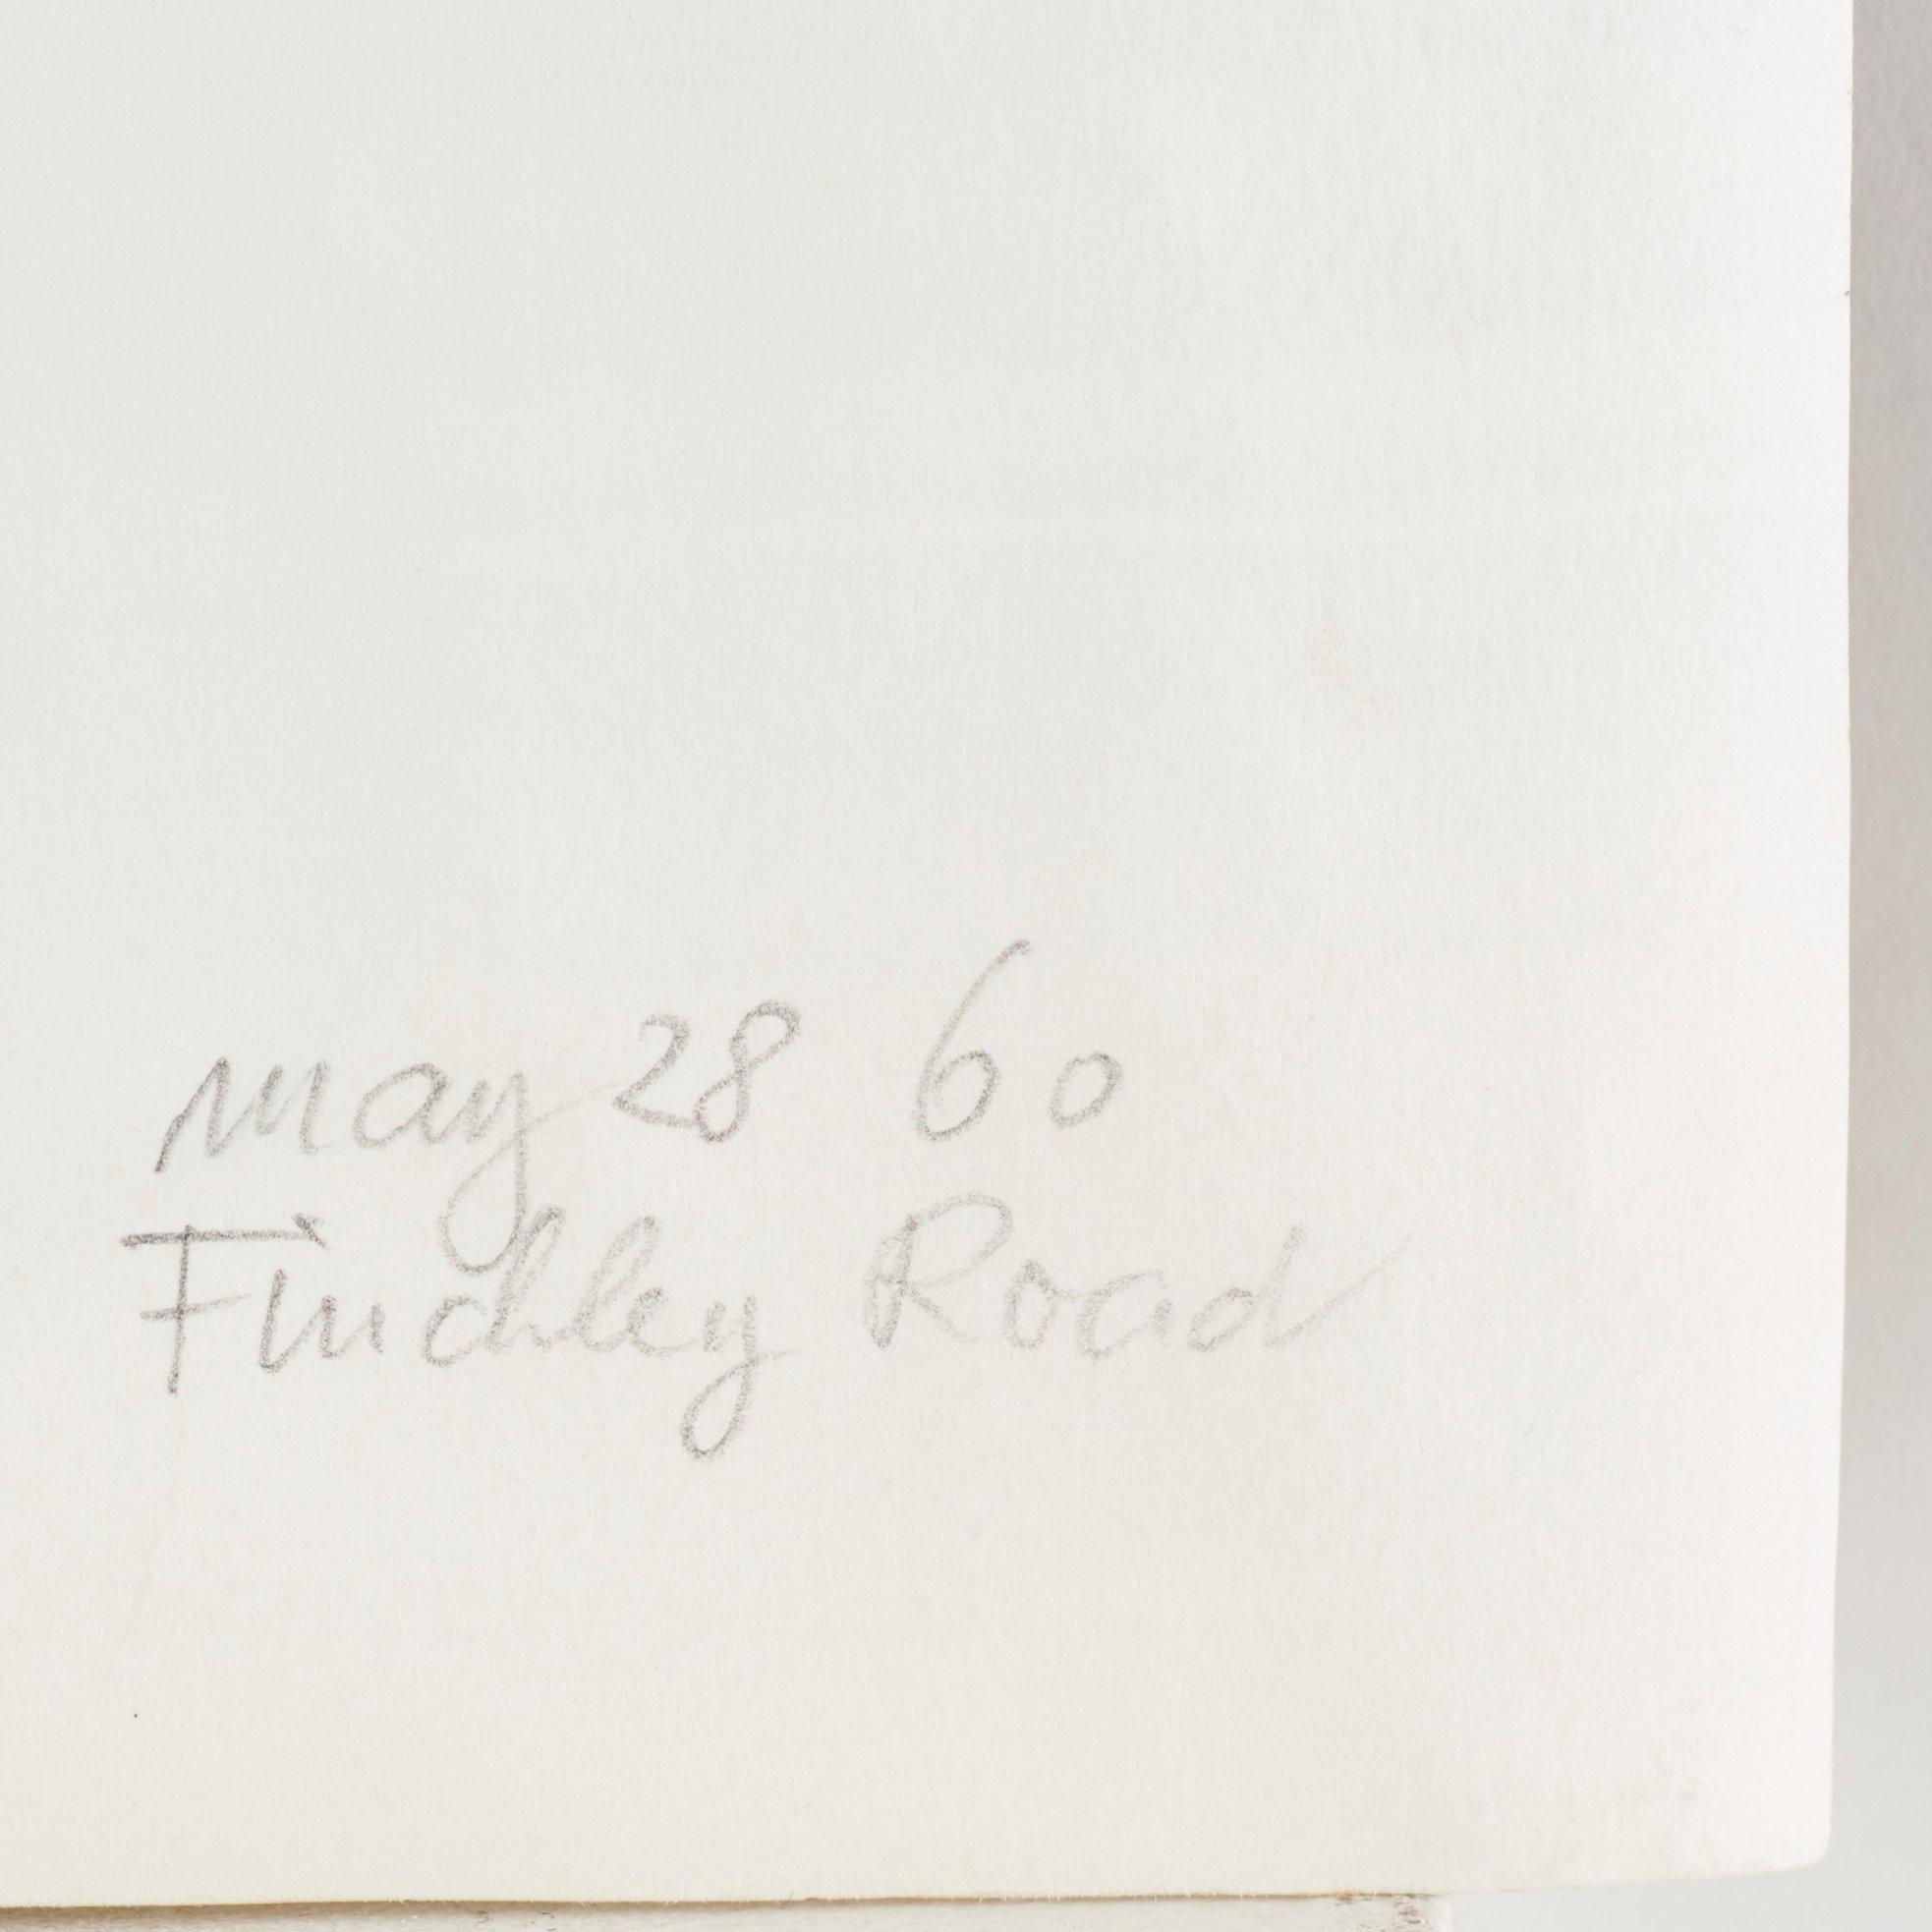 may 28 60
Finchley Road